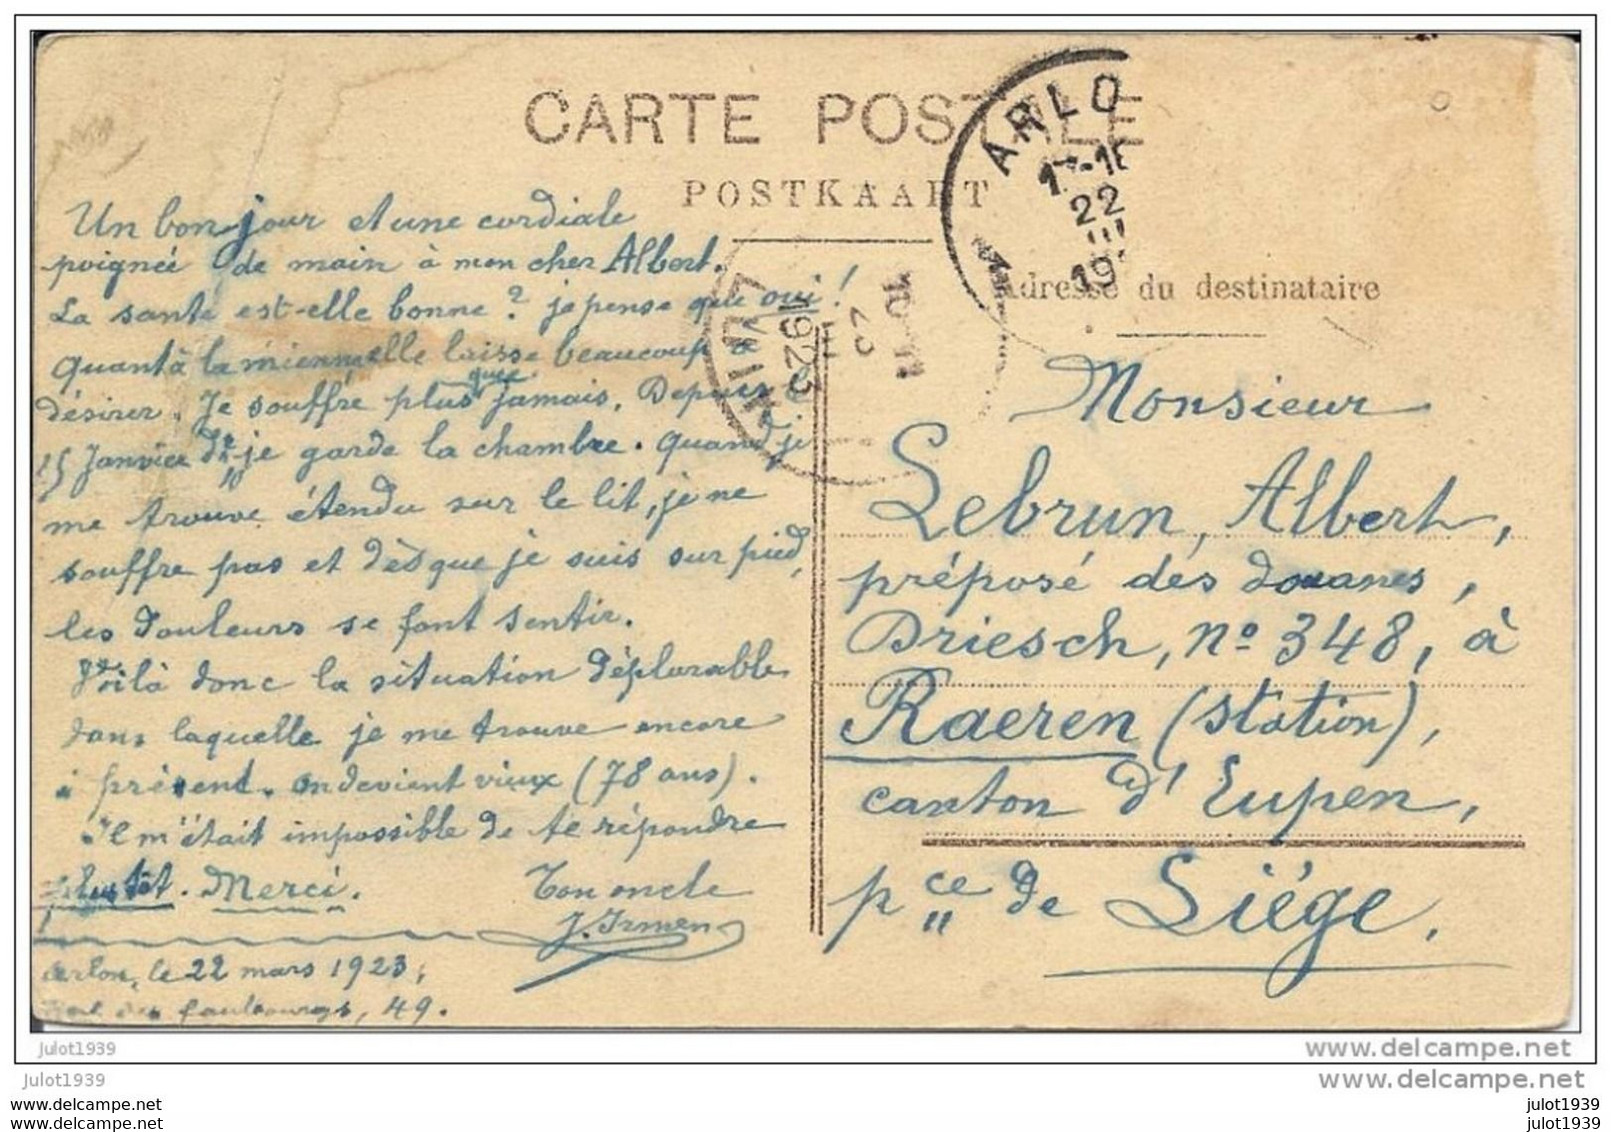 CARTE POSTALE
POSTKAART
ARLO
17-18
22
III
19
Adresse du destinataire
10-11
23
III
1923
Un bonjour et une cordiale
poignée de main à mon cher Albert.
La santé est-elle bonne ? je pense que oui !
Quant à la mienne elle laisse beaucoup à
désirer. Je souffre plus que jamais. Depuis le
15 Janvier je garde la chambre. Quand je
me trouve étendu sur le lit, je ne
souffre pas et dès que je suis sur pied,
les douleurs se font sentir.
Voilà donc la situation déplorable
dans laquelle je me trouve encore
à présent. On devient vieux (78 ans).
Il m'était impossible de te répondre
plus tôt. Merci.
Ton oncle
J. Irmen
Arlon, le 22 mars 1923,
des faubourgs, 49.
Monsieur
Lebrun, Albert,
préposé des douanes,
Driesch, nº 348, à
Raeren (station),
canton d'Eupen,
pce de Liége.
julot1939
julot1939
julot1939
julot1939
www.delcampe.net
www.delcampe.net
www.delcampe.net
www.delcampe.net
julot1939
julot1939